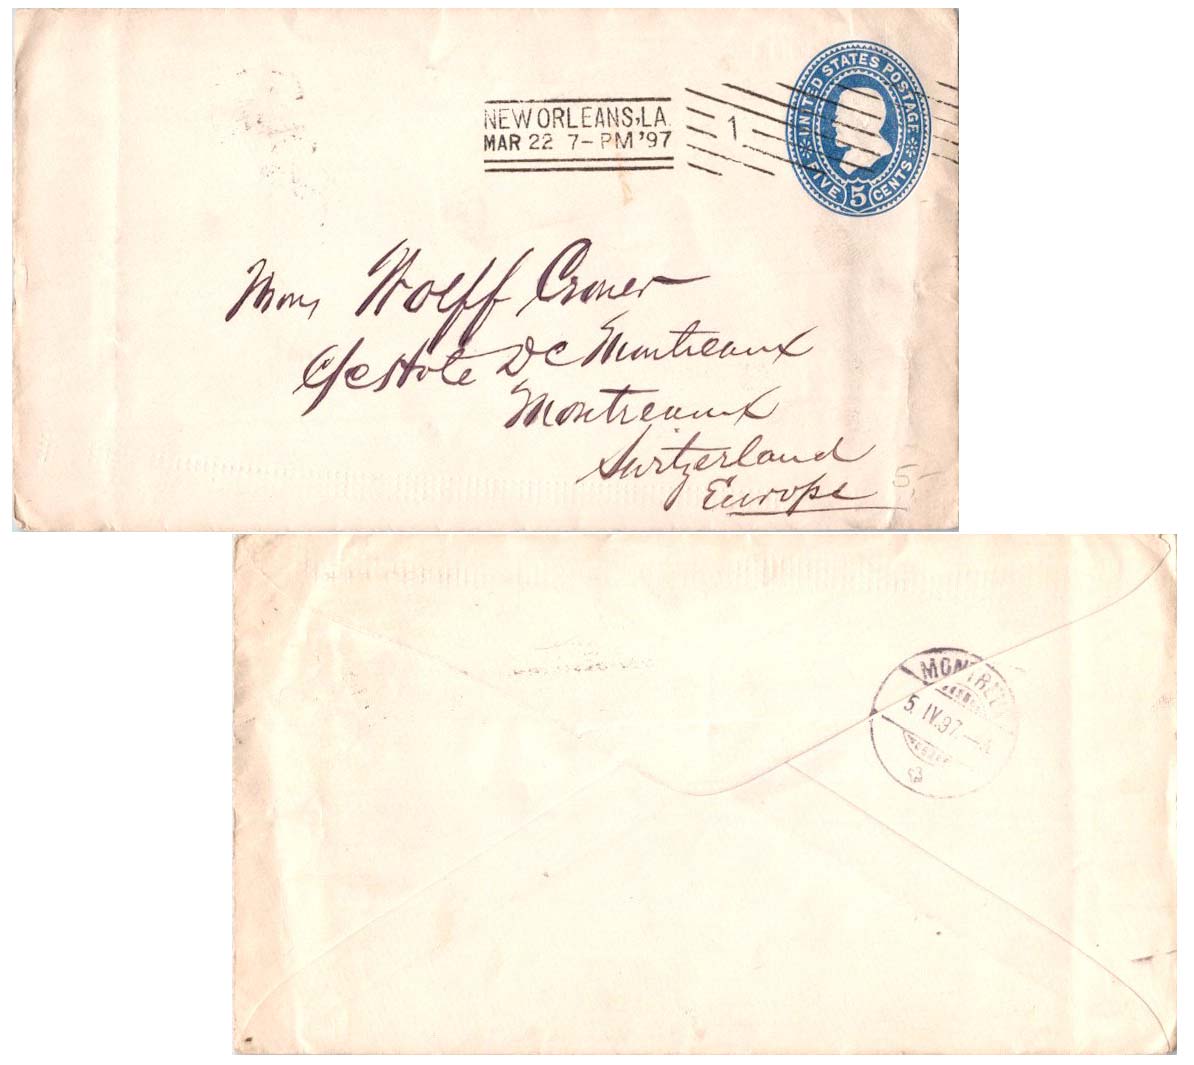 UNITED STATES POSTAGE
FIVE 5 CENTS
NEW ORLEANS, LA.
MAR 22 7-PM '97
1
Mons Wolff Croner
c/o Hote De Muntreaux
Montreaux
Switzerland
Europe
5,-
MONTREUX
5. IV. 97.